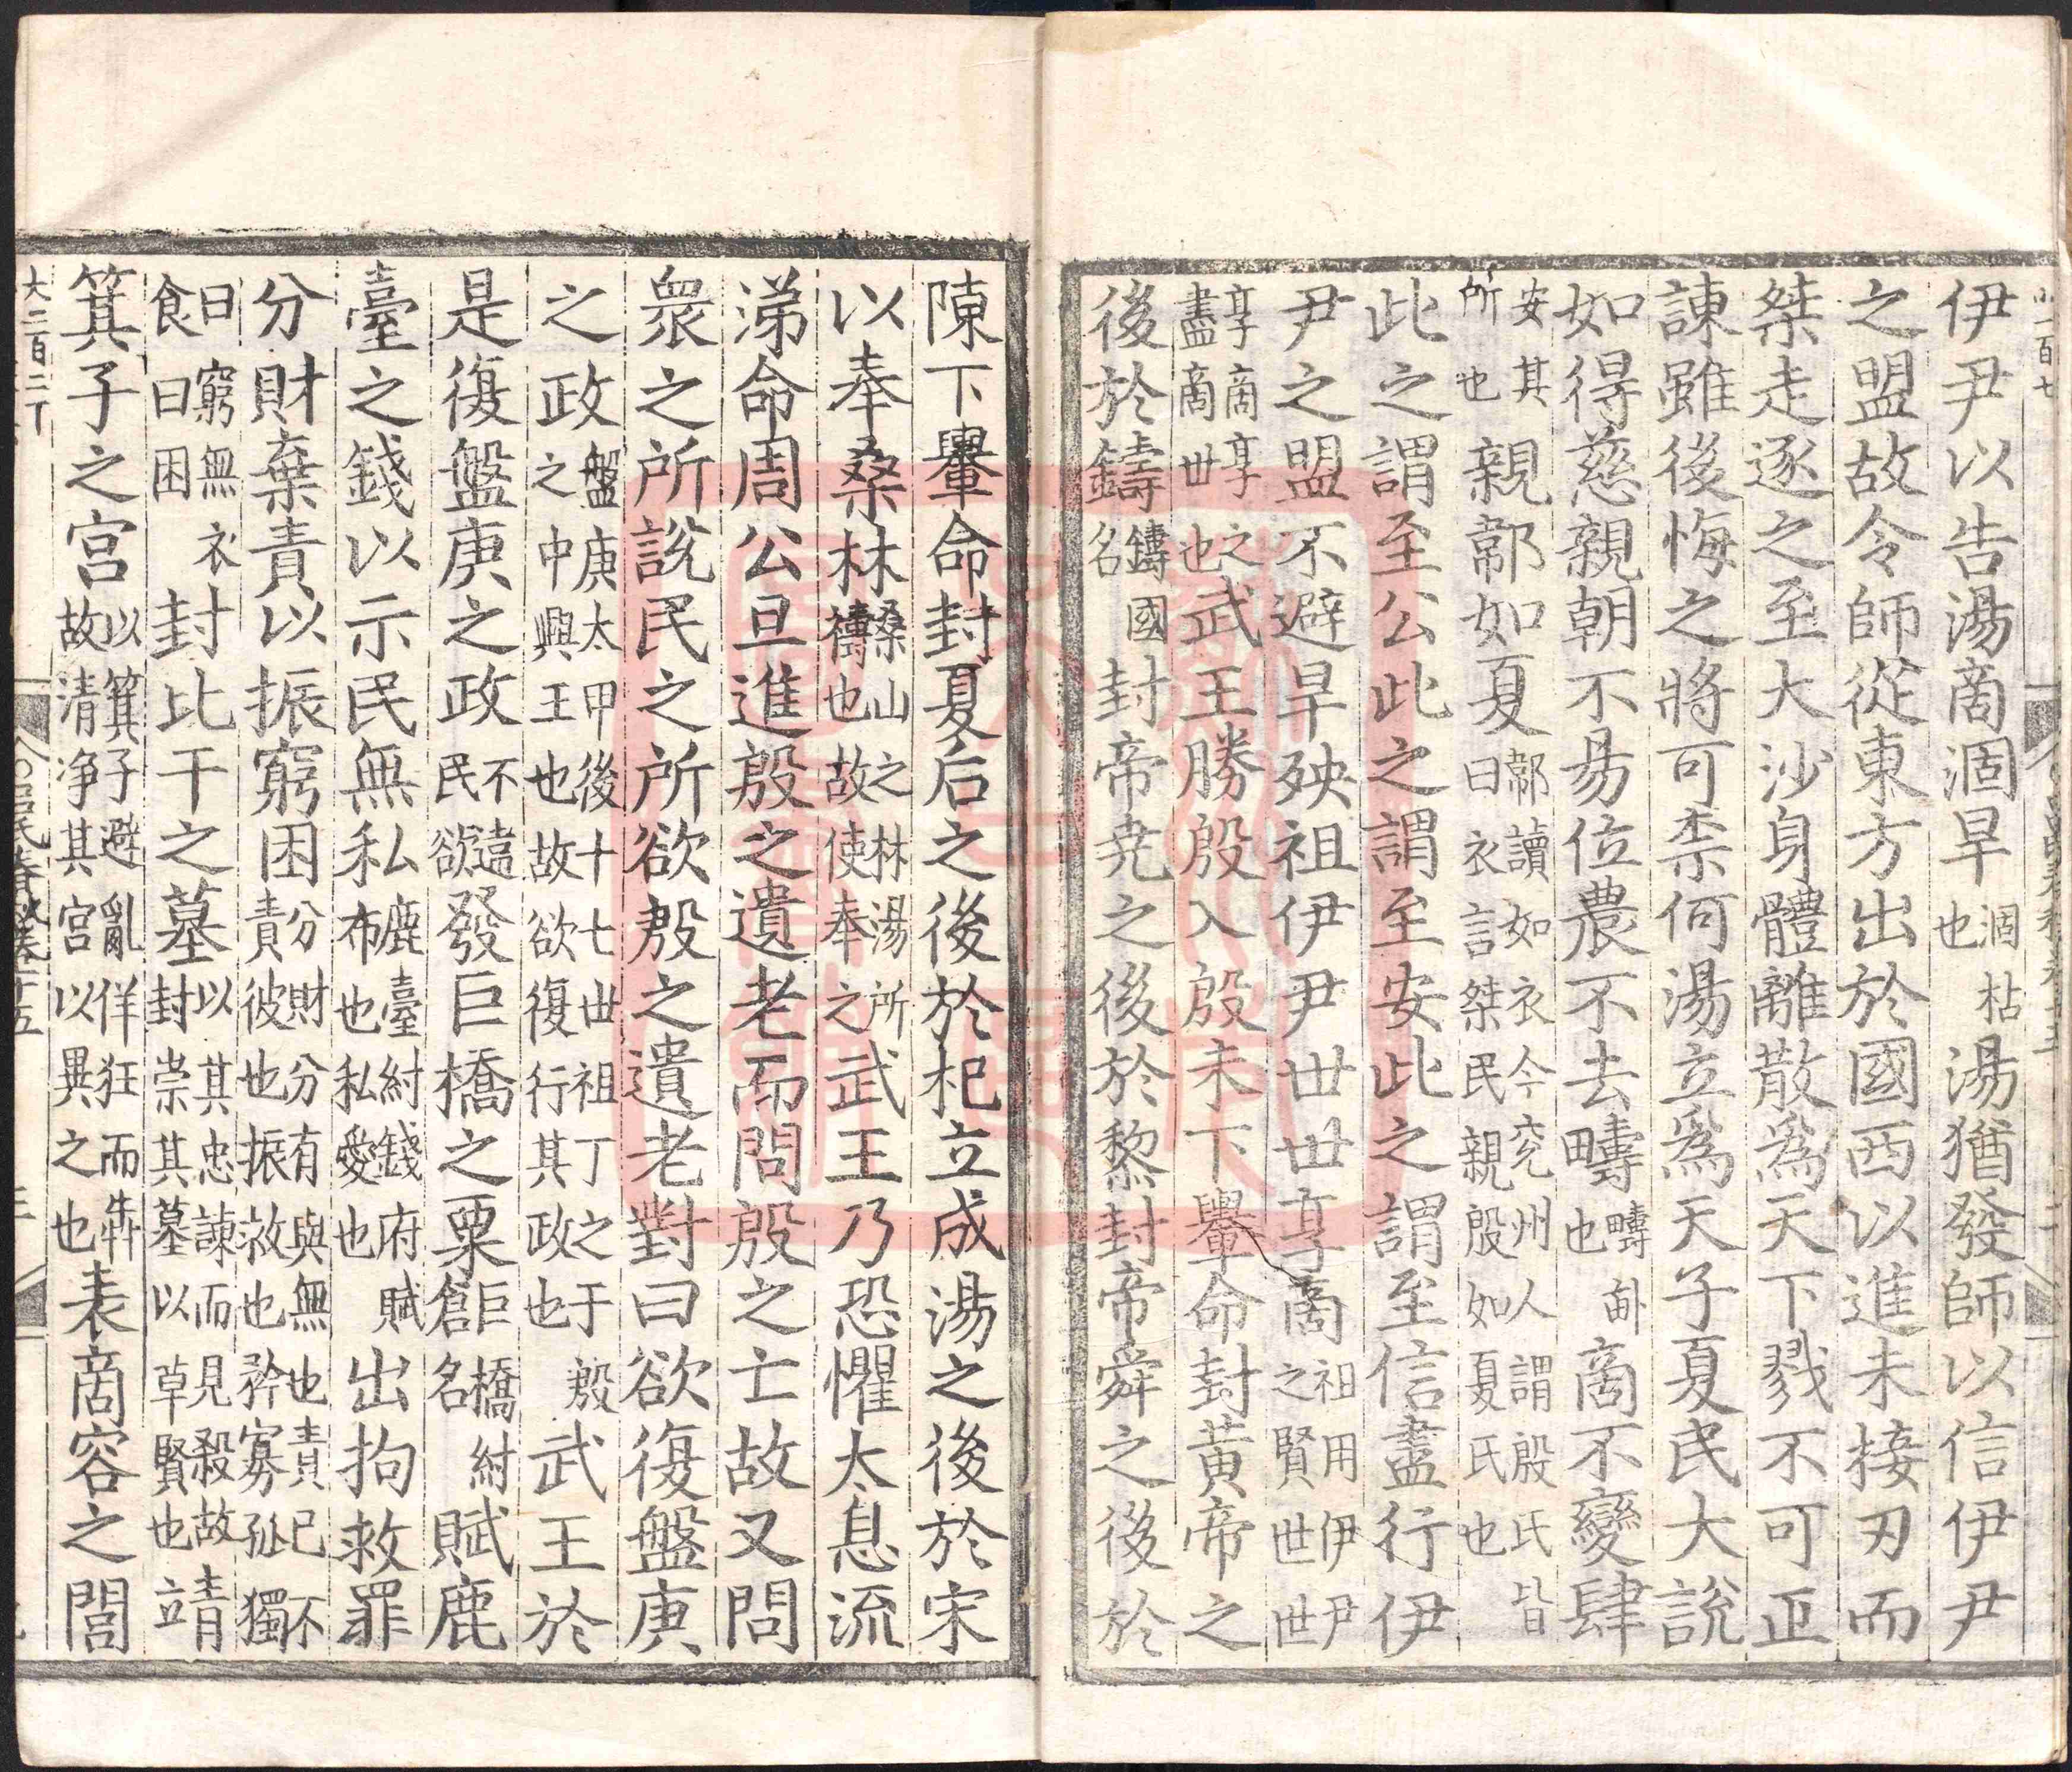 伊尹以告湯商涸旱涸枯也湯猶發師以信伊尹
之盟故令師從東方出於國西以進未接刃而
桀走逐之至大沙身體離散爲天下戮不可正
諫雖後悔之將可柰何湯立爲天子夏民大說
如得慈親朝不易位農不去疇疇畝也商不變肆
安其所也親郼如夏郼讀如衣今兖州人謂殷氏皆曰衣言桀民親殷如夏氏也
此之謂至公此之謂至安此之謂至信盡行伊
尹之盟不避旱殃祖伊尹世世享商祖用伊尹之賢世世
享商享之盡商世也武王勝殷入殷未下轝命封黃帝之
後於鑄鑄國名封帝尭之後於黎封帝舜之後於
陳下轝命封夏后之後於杞立成湯之後於宋
以奉桑林桑山之林湯所禱也故使奉之武王乃恐懼太息流
涕命周公旦進殷之遺老而問殷之亡故又問
衆之所說民之所欲殷之遺老對曰欲復盤庚
之政盤庚太甲後十七世祖丁之子殷之中興王也故欲復行其政也武王於
是復盤庚之政不違民欲發巨橋之粟巨橋紂倉名賦鹿
臺之錢以示民無私鹿臺紂錢府賦布也私愛也出拘救罪
分財棄責以振窮困分財分有與無也責已不責彼也振救也矜寡孤獨
曰窮無衣食曰困封比干之墓以其忠諫而見殺故封崇其墓以草賢也靖
箕子之宮以箕子避亂佯狂而犇故清净其宮以異之也表商容之閭